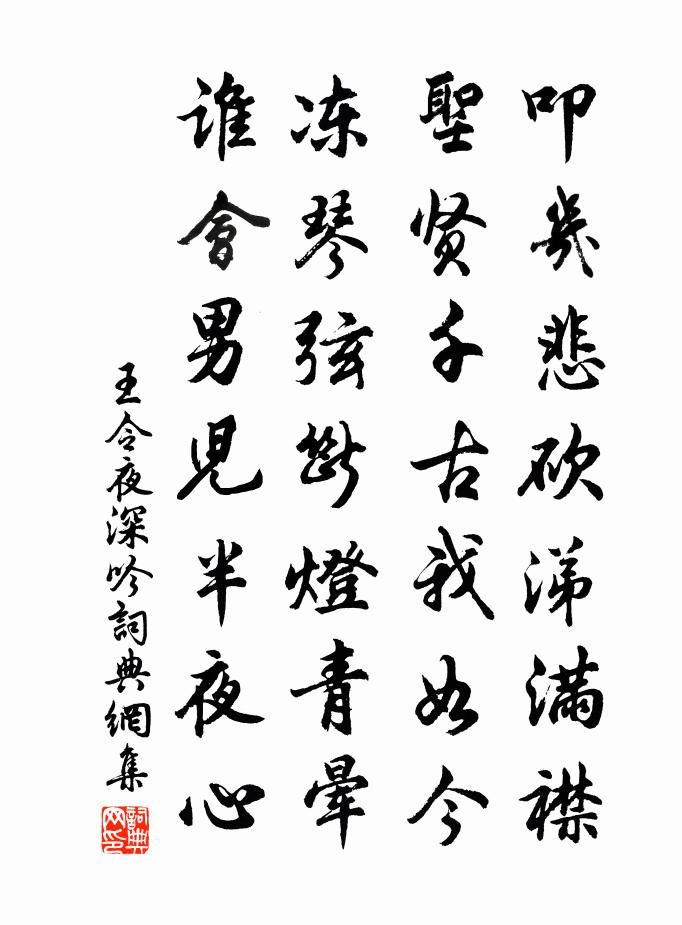 叩幾悲砍涕满襟
聖贤千古我如今
冻琴弦斷燈青暈
誰會男兒半夜心
王令夜深吟詞典網集
詞典网印